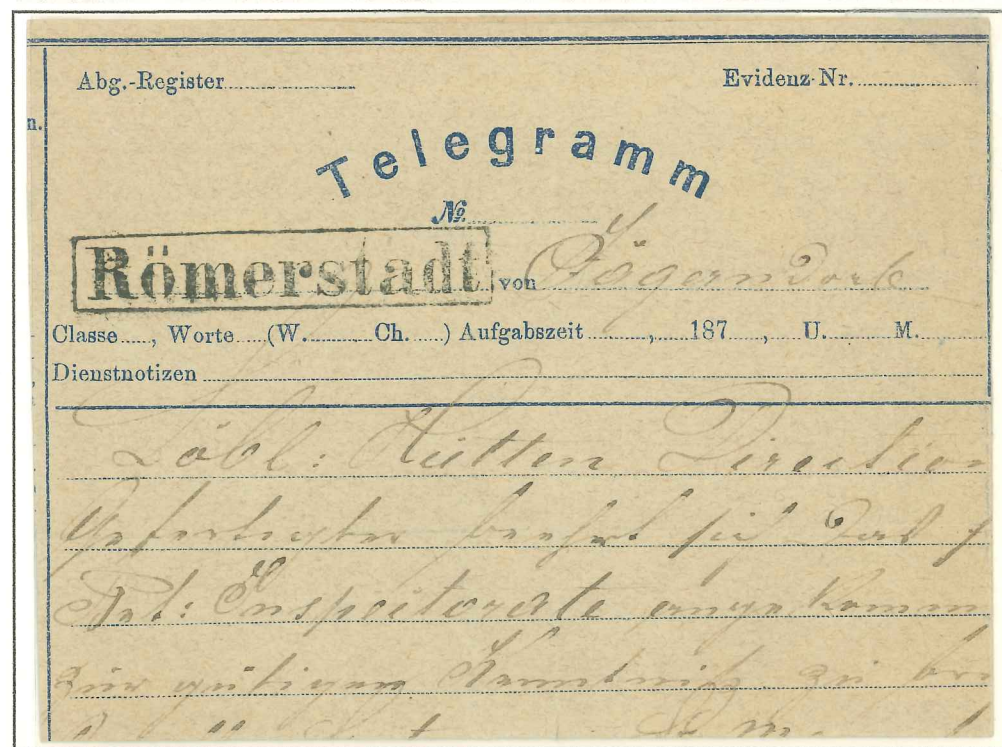 Abg.-Register Evidenz-Nr.
n.
Telegramm
№
Römerstadt von Jägerndorf
Classe, Worte (W. Ch. ) Aufgabszeit , 187 , U. M.
Dienstnotizen
Löbl: Hütten Direction
Gefertigter beehrt sich das
Tel: Inspectorate angekomm
zur gütigen Kenntniß zu br